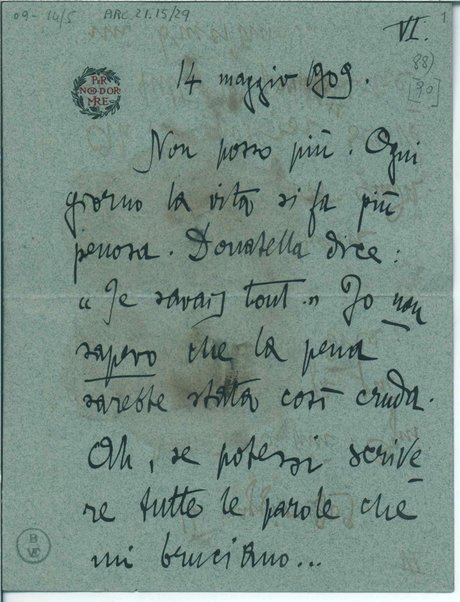 09-14/5 ARC 21.15/29
VI.
1
88)
[90]
PER
NON DOR
MIRE
14 maggio 1909.
Non posso più. Ogni
giorno la vita si fa più
penosa. Donatella dice:
"Je savais tout." Io non
sapevo che la pena
sarebbe stata così cruda.
Ah, se potessi scrive
re tutte le parole che
mi bruciano...